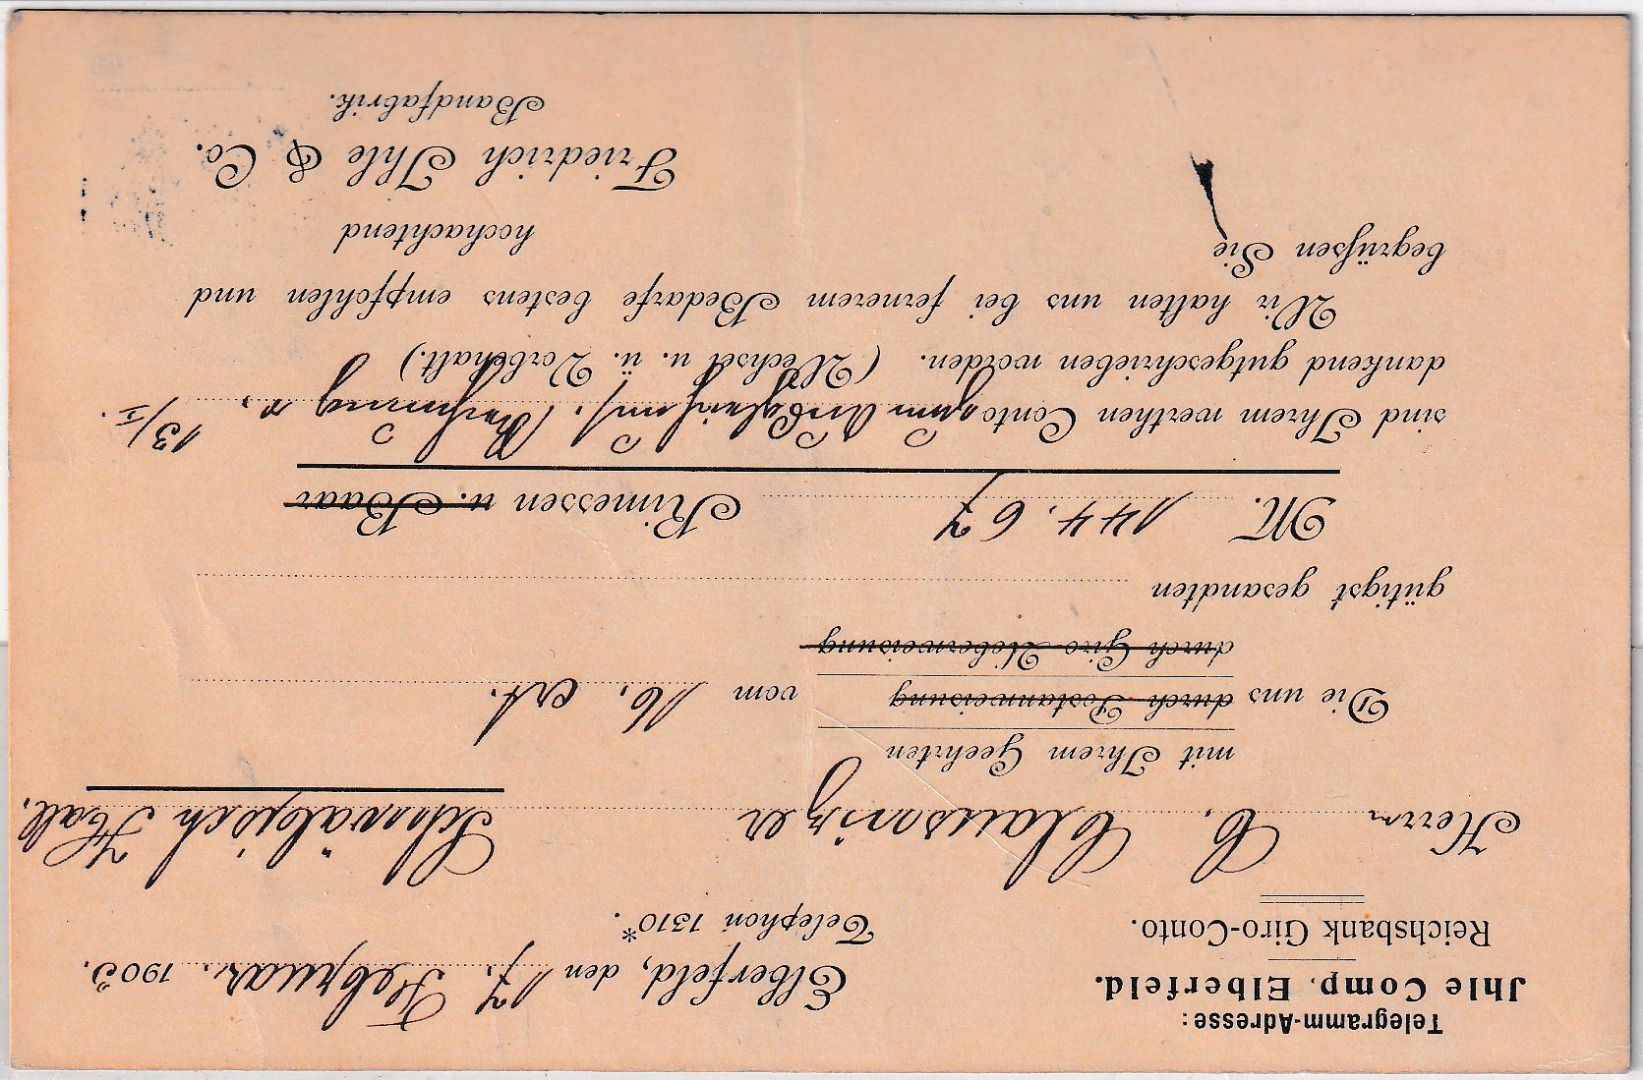 Telegramm-Adresse:
Jhle Comp. Elberfeld.
Reichsbank Giro-Conto.
Elberfeld, den 17. Februar. 1903.
Telephon 1310*.
Herrn C. Clausnizer
Schwäbisch Hall.
mit Ihrem Geehrten
Die uns durch Postanweisung vom 16. crt.
durch Giro-Ueberweisung
gütigst gesandten
M. 144.67 Rimessen u. Baar
sind Ihrem werthen Conto zum Ausgleich m/. Rechnung v. 13/I.
dankend gutgeschrieben worden. (Wechsel u. ü. Vorbehalt.)
Wir halten uns bei fernerem Bedarfe bestens empfohlen und
begrüßen Sie
hochachtend
Friedrich Ihle & Co.
Bandfabrik.